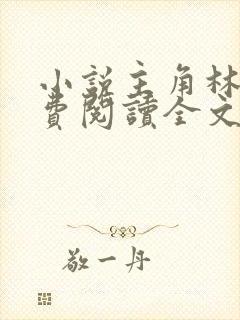 小説主角林
費閱讀全文
敬一丹